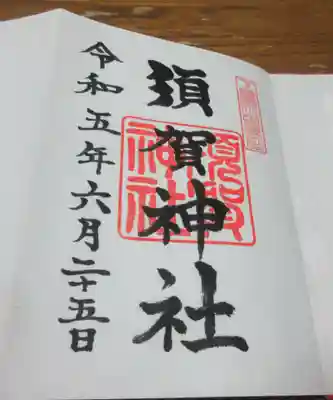 須賀神社
令和五年六月二十五日
須賀
神社